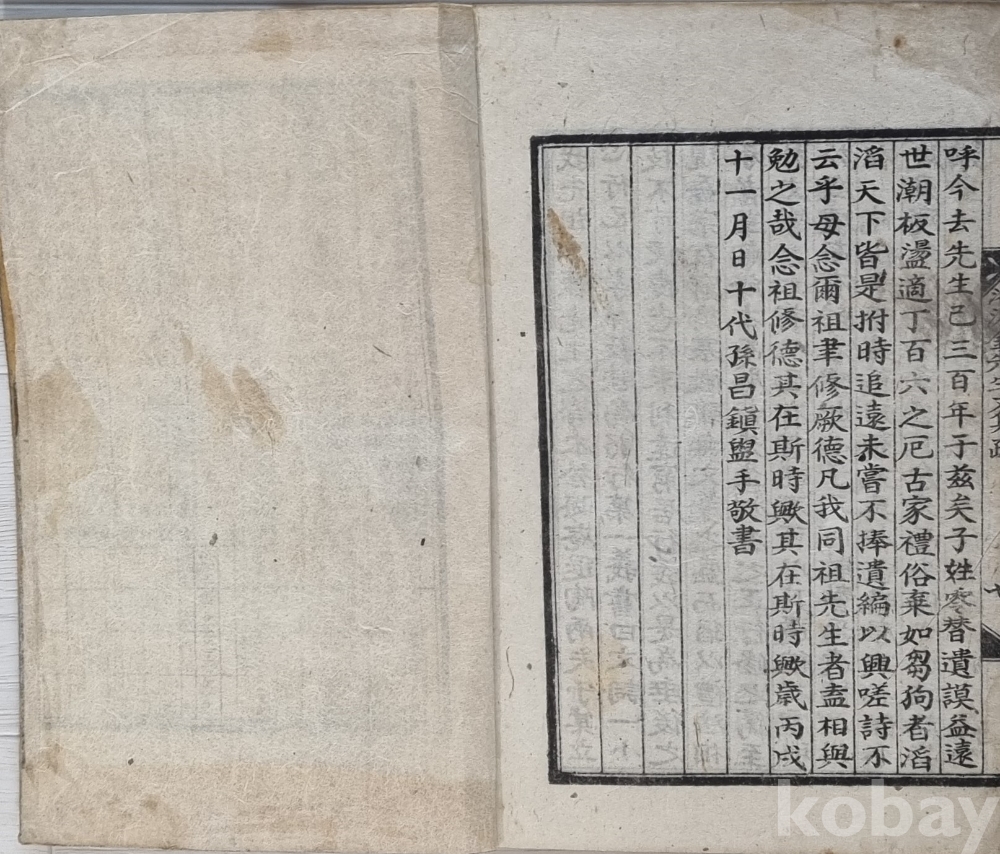 呼今去先生已三百年于茲矣子姓零替遺謨益遠
世潮板盪適丁百六之厄古家禮俗棄如芻狗者滔
滔天下皆是拊時追遠未嘗不捧遺編以興嗟詩不
云乎毋念爾祖聿修厥德凡我同祖先生者盍相與
勉之哉念祖修德其在斯時歟其在斯時歟歲丙戌
十一月日十代孫昌鎭盥手敬書
kobay